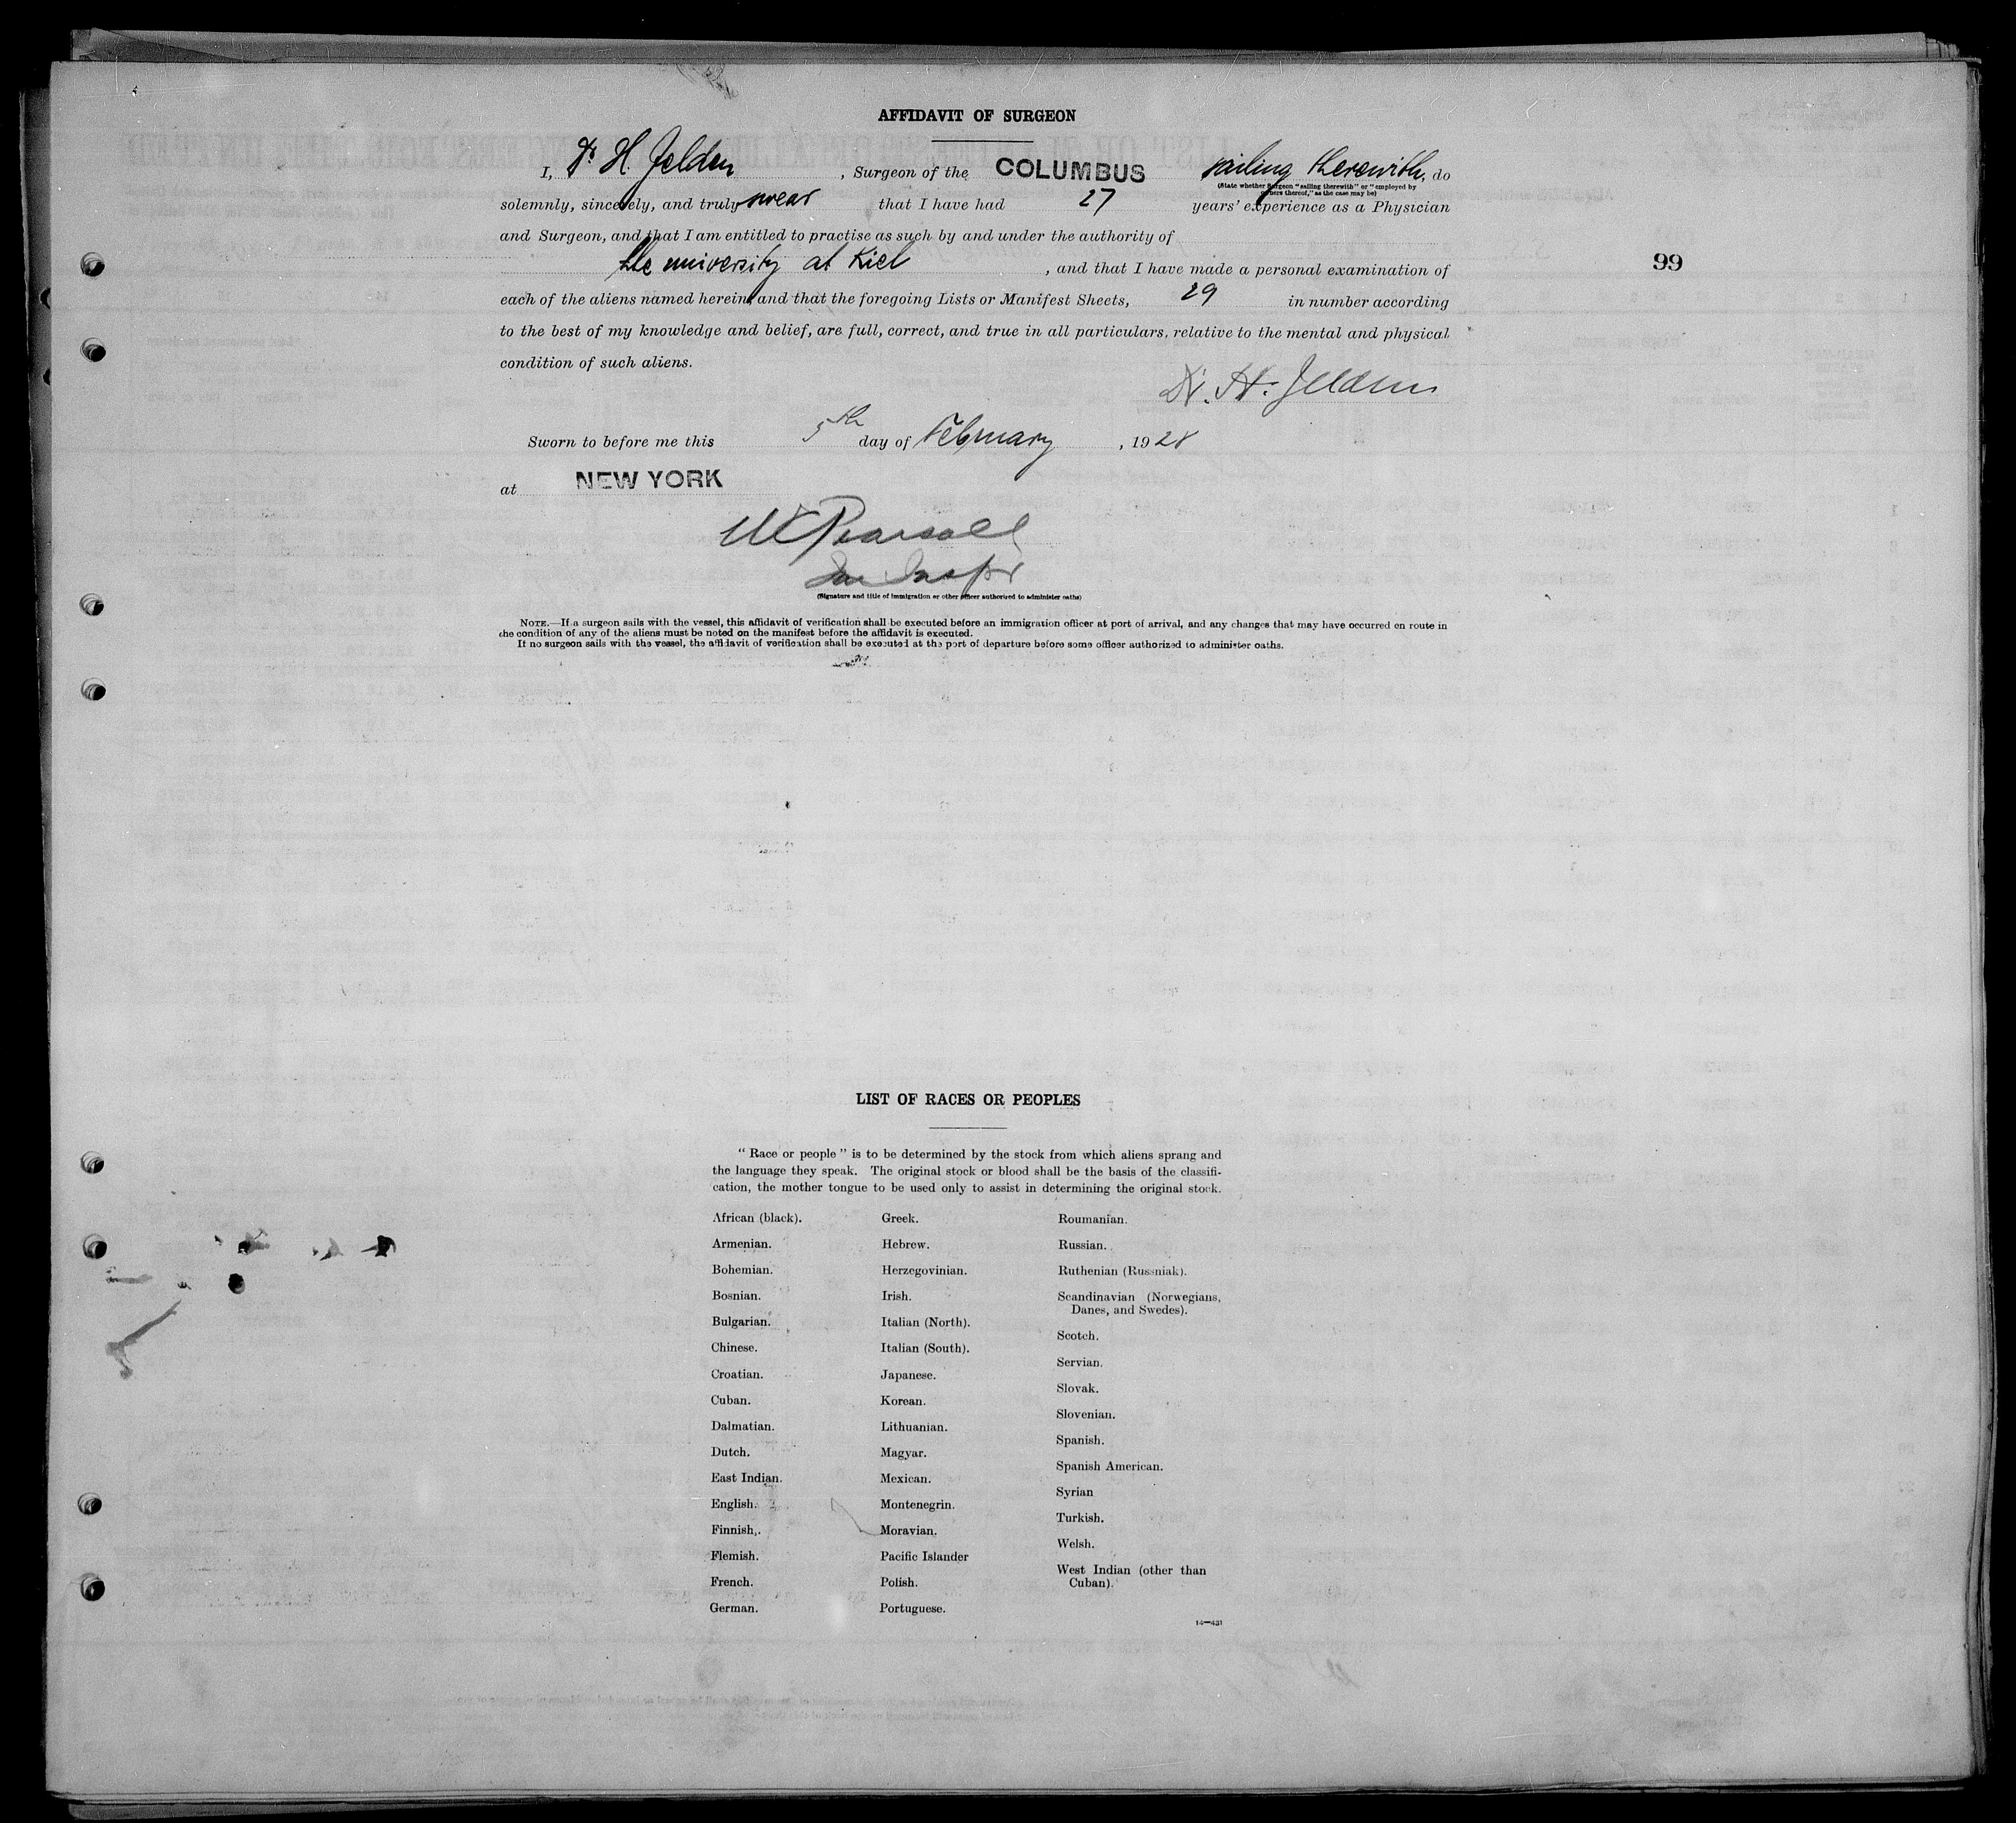 AFFIDAVIT OF SURGEON
I, Dr. H. Jelden, Surgeon of the COLUMBUS sailing therewith, do
(State whether Surgeon "sailing therewith" or "employed by
owners thereof," as the case may be)
solemnly, sincerely, and truly swear that I have had 27 years' experience as a Physician
and Surgeon, and that I am entitled to practise as such by and under the authority of
the university at Kiel, and that I have made a personal examination of
99
each of the aliens named herein, and that the foregoing Lists or Manifest Sheets, 29 in number according
to the best of my knowledge and belief, are full, correct, and true in all particulars, relative to the mental and physical
condition of such aliens.
Dr. H. Jelden
Sworn to before me this 5th day of February, 1928
at NEW YORK
Pearsall
(Signature and title of immigration or other officer authorized to administer oaths)
NOTE.—If a surgeon sails with the vessel, this affidavit of verification shall be executed before an immigration officer at port of arrival, and any changes that may have occurred en route in
the condition of any of the aliens must be noted on the manifest before the affidavit is executed.
If no surgeon sails with the vessel, the affidavit of verification shall be executed at the port of departure before some officer authorized to administer oaths.
LIST OF RACES OR PEOPLES
"Race or people" is to be determined by the stock from which aliens sprang and
the language they speak. The original stock or blood shall be the basis of the classifi-
cation, the mother tongue to be used only to assist in determining the original stock.
African (black).
Armenian.
Bohemian.
Bosnian.
Bulgarian.
Chinese.
Croatian.
Cuban.
Dalmatian.
Dutch.
East Indian.
English.
Finnish.
Flemish.
French.
German.
Greek.
Hebrew.
Herzegovinian.
Irish.
Italian (North).
Italian (South).
Japanese.
Korean.
Lithuanian.
Magyar.
Mexican.
Montenegrin.
Moravian.
Pacific Islander
Polish.
Portuguese.
Roumanian.
Russian.
Ruthenian (Russniak).
Scandinavian (Norwegians,
Danes, and Swedes).
Scotch.
Servian.
Slovak.
Slovenian.
Spanish.
Spanish American.
Syrian
Turkish.
Welsh.
West Indian (other than
Cuban).
14—431